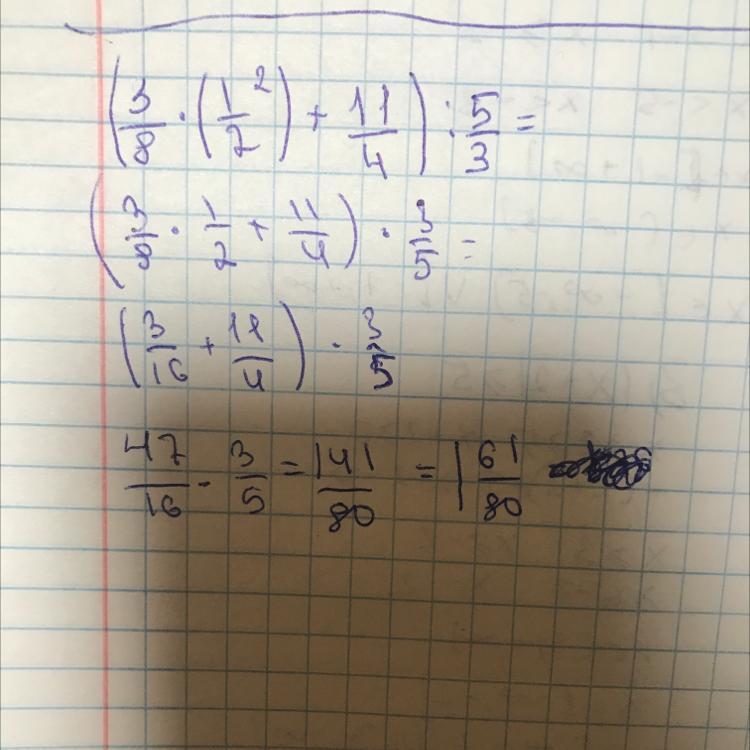 (3/8 · (1²/2) + 11/4) : 5/3 =
(3/8 · 1/2 + 11/4) · 3/5 =
(3/16 + 11/4) · 3/5
47/16 · 3/5 = 141/80 = 1 61/80